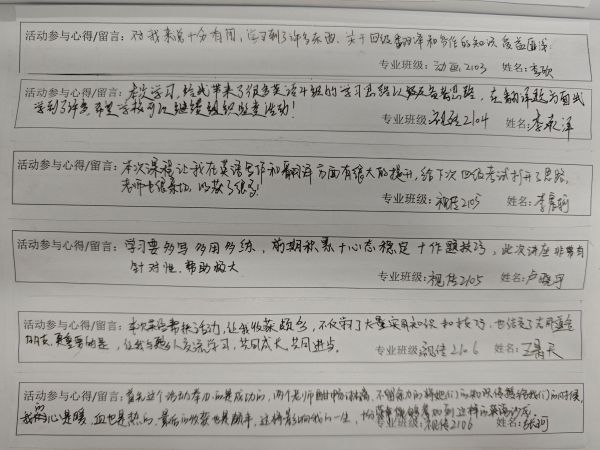 活动参与心得/留言：对我来说十分有用，学习到了许多东西，关于四级翻译和写作的知识受益匪浅
专业班级：动画2103 姓名：李欣
活动参与心得/留言：本次学习，给我带来了很多英语升级的学习思路以及应答思路，在翻译题方面我
学到了许多，希望学校可以继续组织此类活动！
专业班级：视传2104 姓名：李
活动参与心得/留言：本次课程让我在英语写作和翻译方面有很大的提升，给下次四级考试打开了思路，
老师也很亲切，收获了很多！
专业班级：视传2105 姓名：李
活动参与心得/留言：学习要多写多用多练，前期积累+心态稳定+作题技巧，此次讲座非常有
针对性，帮助极大
专业班级：视传2105 姓名：卢晓
活动参与心得/留言：本次英语帮扶活动，让我收获颇多，不仅学到了大量实用知识和技巧，也结交了志同道合
的朋友，更重要的是，让我与更多人交流学习，共同成长，共同进步。
专业班级：视传2106 姓名：王天
活动参与心得/留言：首先这个活动举办的是成功的，两个老师酣畅淋漓、不留余力的将她们的知识传授给我们的时候，
我的心是暖，血也是热的，最后的收获也是颇丰，这将影响我的一生，
专业班级：视传2106 姓名：张